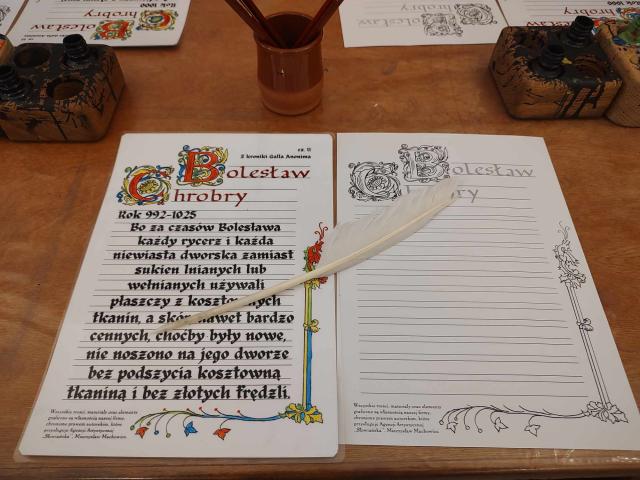 Rok 1000
hrobry
Bolesław
hrobry
cz. II
Z kroniki Galla Anonima
Bolesław
Chrobry
Rok 992-1025
Bo za czasów Bolesława
każdy rycerz i każda
niewiasta dworska zamiast
sukien lnianych lub
wełnianych używali
płaszczy z kosztownych
tkanin, a skór nawet bardzo
cennych, choćby były nowe,
nie noszono na jego dworze
bez podszycia kosztowną
tkaniną i bez złotych frędzli.
Wszystkie treści, materiały oraz elementy
graficzne są własnością naszej firmy,
chronione prawem autorskim, które
przysługuje Agencji Artystycznej
„Słowiańska”, Mieczysław Machowicz
Bolesław
Ch ry
Wszystkie treści, materiały oraz elementy
graficzne są własnością naszej firmy,
chronione prawem autorskim, które
przysługuje Agencji Artystycznej
„Słowiańska”, Mieczysław Machowicz